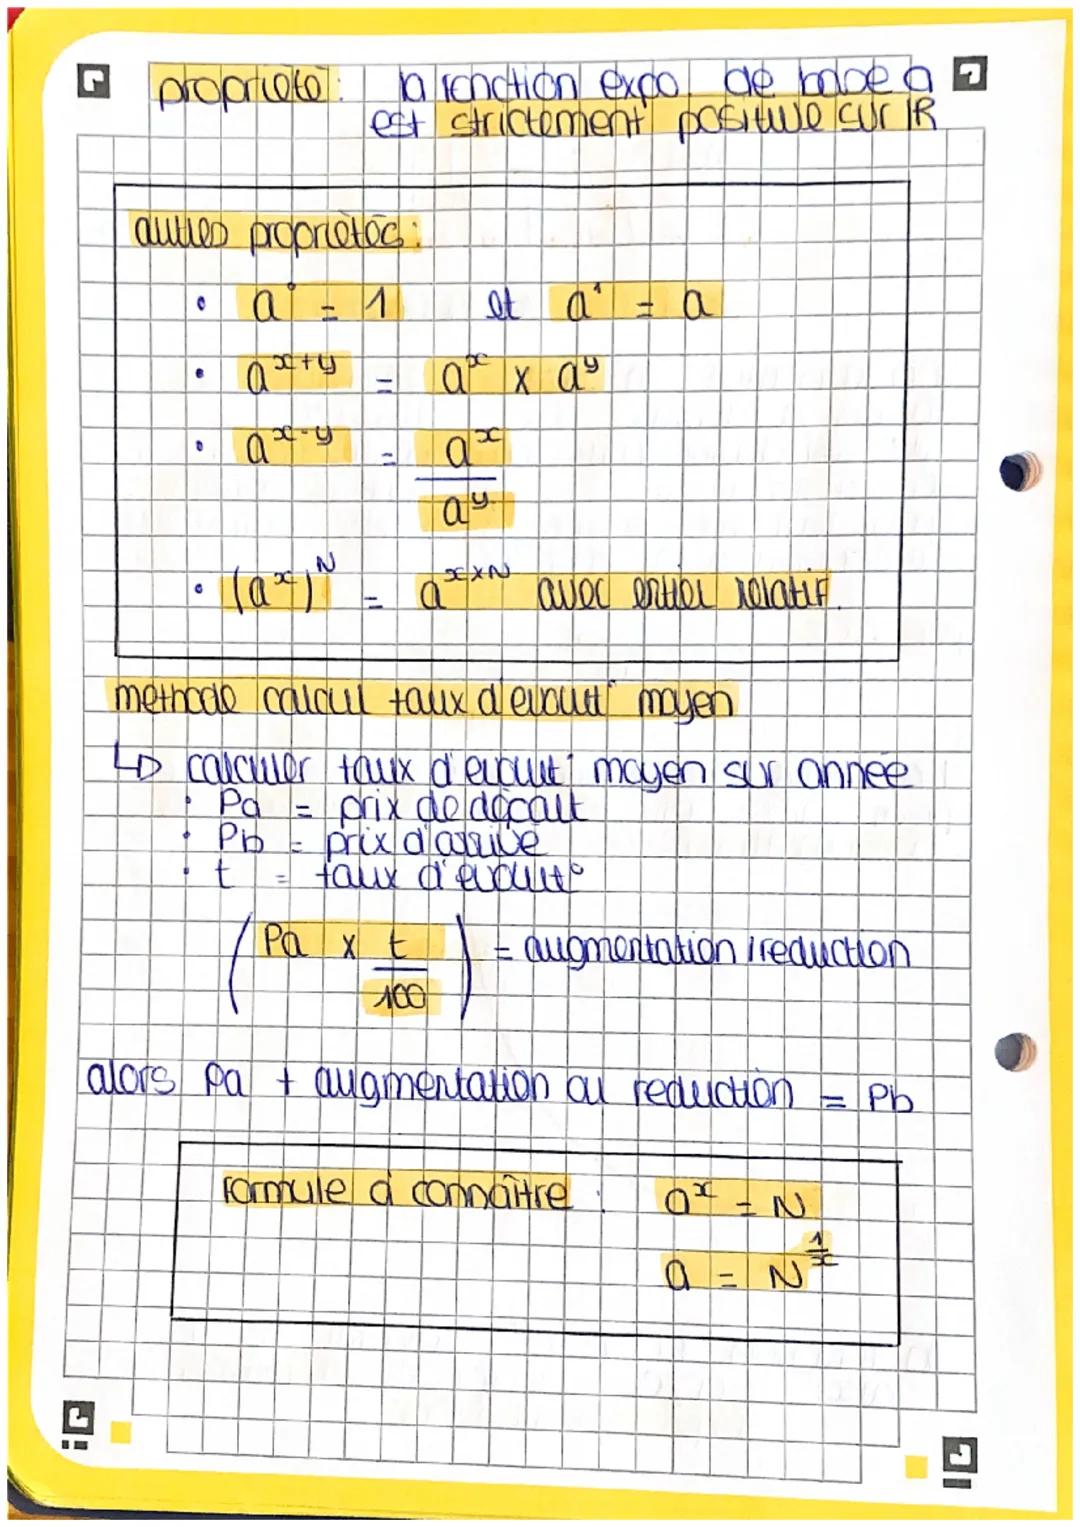 propriété : la fonction expo. de base a
est strictement positive sur ℝ
autres propriétés :
• a⁰ = 1 et a¹ = a
• a^(x+y) = a^x × a^y
• a^(x-y) = a^x / a^y
• (a^x)^N = a^(x×N) avec entier relatif.
methode calcul taux d'evolut° moyen
↳ calculer taux d'evolut° moyen sur année
• Pa = prix de départ
• Pb = prix d'arrivé
• t = taux d'evolut°
(Pa × t / 100) = augmentation / reduction
alors Pa + augmentation ou reduction = Pb
formule à connaître : a^x = N
a = N^(1/x)